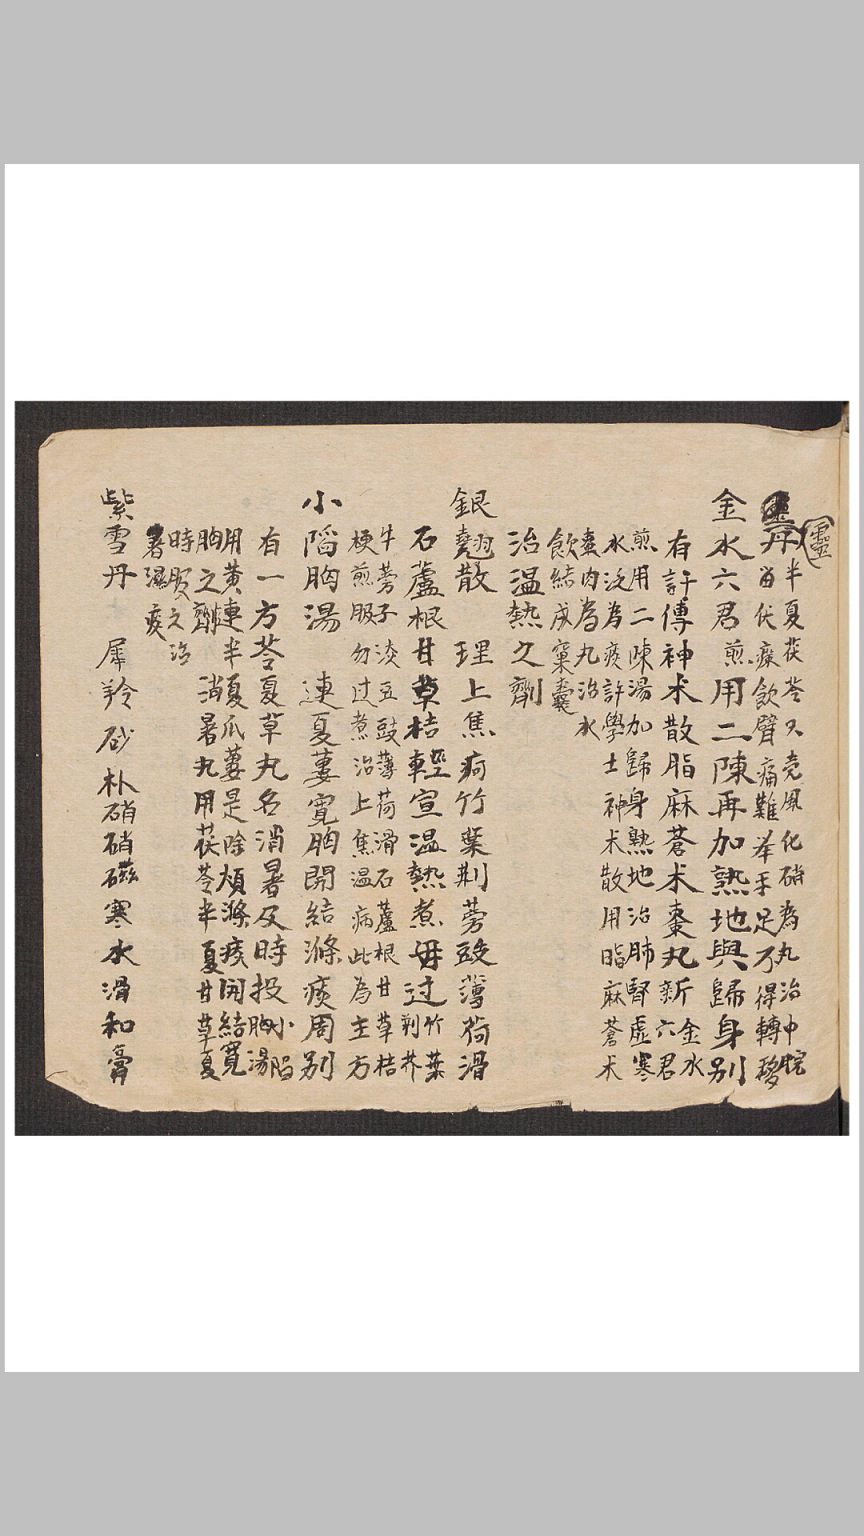 靈
丹半夏茯苓又壳風化硝為丸治中脘
畄伏痰飲臂痛難举手足不得轉移
金水六君煎用二陳再加熟地與歸身别
有許傳神术散脂麻蒼术棗丸新金水六君
煎用二陳湯加歸身熟地治肺腎虚寒
水泛為痰許學士神术散用脂麻蒼术
棗肉為丸治水
飲結成窠囊
治温熱之劑
銀翹散 理上焦病竹葉荆蒡豉薄荷滑
石蘆根甘草桔輕宣温熱煮毋过竹葉荆芥
牛蒡子淡豆豉薄荷滑石蘆根甘草桔
梗煎服勿过煮治上焦温病此為主方
小陷胸湯 連夏蔞寛胸開結滌痰周别
有一方苓夏草丸名消暑及時投小陷胸湯
用黄連半夏瓜蔞是除煩滌痰開結寛
胸之劑 消暑丸用茯苓半夏甘草夏
時服之治
暑濕痰
紫雪丹 犀羚砂朴硝硝磁寒水滑和膏